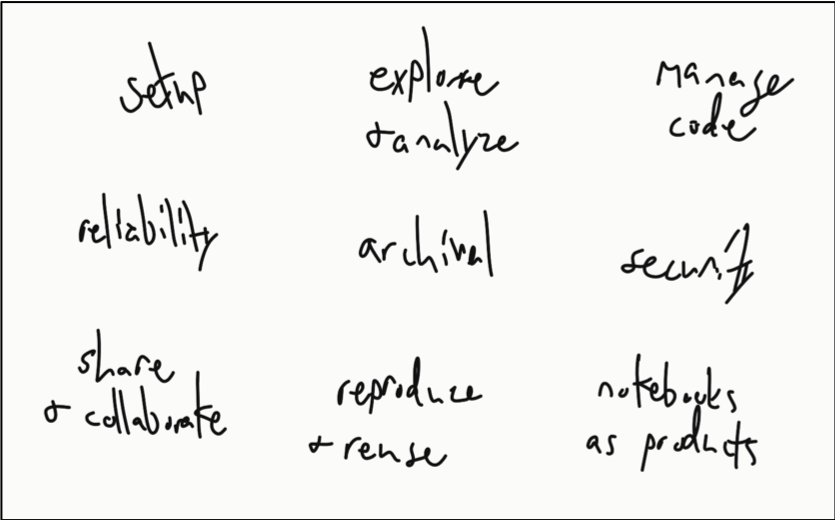 setup
explore
+ analyze
manage
code
reliability
archival
security
share
+ collaborate
reproduce
+ reuse
notebooks
as products